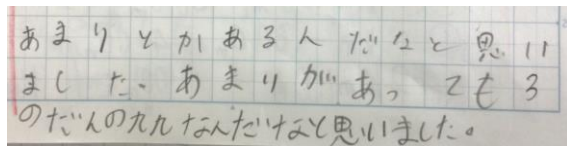 あまりとかあるんだなと思い
ました。あまりがあっても3
のだんの九九なんだなと思いました。